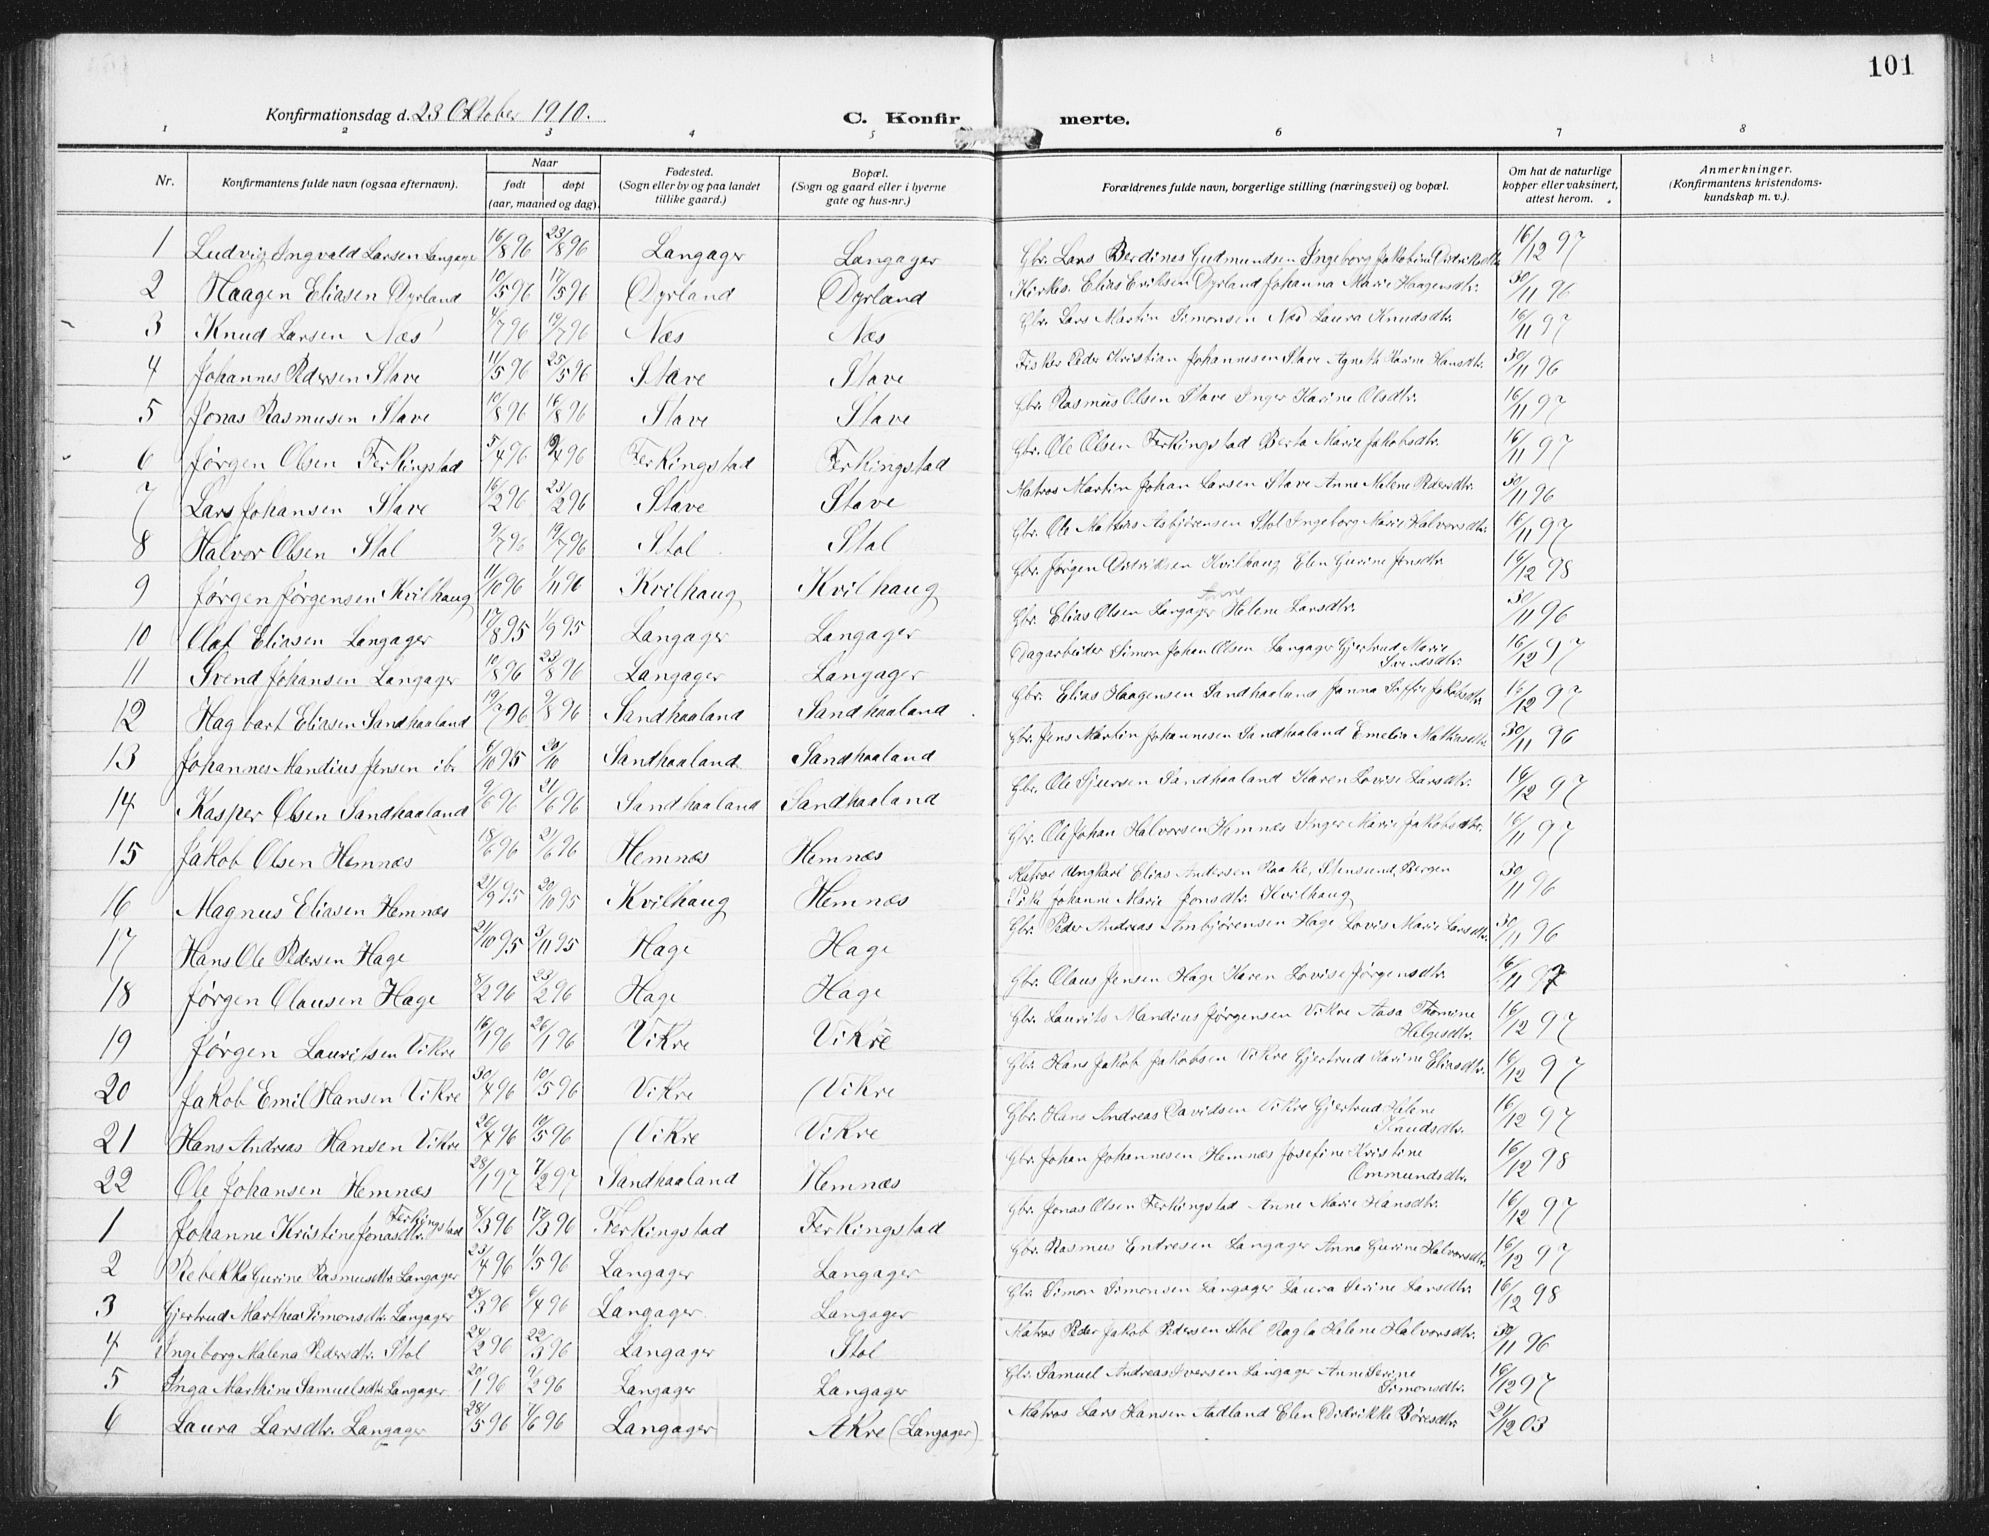 101
Konfirmationsdag d. 23 Oktober 1910.
C. Konfirmerte.
1 2 3 4 5 6 7 8
Nr. Konfirmantens fulde navn (ogsaa efternavn). Naar født døpt (aar, maaned og dag). Fødested. (Sogn eller by og paa landet tillike gaard.) Bopæl. (Sogn og gaard eller i byerne gate og hus-nr.) Forældrenes fulde navn, borgerlige stilling (næringsvei) og bopæl. Om hat de naturlige kopper eller vaksinert, attest herom. Anmerkninger. (Konfirmantens kristendoms-kundskap m. v.).
1 Ludvig Ingvald Larsen Langager 16/8 96 23/8 96 Langager Langager Gbr. Lars Berdines Gudmundsen Ingeborg Jakobine Didriksdtr 16/12 97
2 Haagen Eliasen Dyrland 10/5 96 17/5 96 Dyrland Dyrland Kirkes. Elias Eriksen Dyrland Johanna Marie Haagensdtr. 30/11 96
3 Knud Larsen Næs 4/7 96 19/7 96 Næs Næs Gbr. Lars Martin Simonsen Næs Laura Knudsdtr. 16/11 97
4 Johannes Pedersen Stave 11/5 96 25/5 96 Stave Stave Fisker Peder Kristian Johannesen Stave Agneth Karine Hansdtr. 30/11 96
5 Jonas Rasmusen Stave 10/8 96 16/8 96 Stave Stave Gbr. Rasmus Olsen Stave Inger Karine Olsdtr. 16/11 97
6 Jørgen Olsen Ferkingstad 5/4 96 4 96 Ferkingstad Ferkingstad Gbr. Ole Olsen Ferkingstad Berta Marie Jakobsdtr. 16/11 97
7 Lars Johansen Stave 16/2 96 23/2 96 Stave Stave Matros Martin Johan Larsen Stave Anne Malene Pedersdtr. 30/11 96
8 Halvor Olsen Stol 9/7 96 19/7 96 Stol Stol Gbr. Ole Mathias Asbjørensen Stol Ingeborg Marie Halvorsdtr. 16/11 97
9 Jørgen Jørgensen Kvilhaug 11/10 96 1/11 96 Kvilhaug Kvilhaug Gbr. Jørgen Didriksen Kvilhaug Elen Gurine Jonsdtr. 16/12 98
10 Olaf Eliasen Langager 17/8 95 1/9 95 Langager Langager Gbr. Elias Olsen Langager Helene Larsdtr. 30/11 96
11 Svend Johansen Langager 10/8 96 23/8 96 Langager Langager Dagarbeider Simon Johan Olsen Langager Gjertrud Marie Svendsdtr. 16/12 97
12 Hagbart Eliasen Sandhaaland 19/7 96 9/8 96 Sandhaaland Sandhaaland Gbr. Elias Haagensen Sandhaaland Janna Soffie Jakobsdtr 16/12 97
13 Johannes Mandius Jensen ibr 6/10 95 20/10 Sandhaaland Sandhaaland Gbr. Jens Martin Johannesen Sandhaaland Emelia Mathiasdtr. 30/11 96
14 Kasper Olsen Sandhaaland 9/6 96 21/6 96 Sandhaaland Sandhaaland Gbr. Ole Sjursen Sandhaaland Karen Lovise Larsdtr. 16/12 97
15 Jakob Olsen Hemnæs 18/6 96 21/6 96 Hemnæs Hemnæs Gbr. Ole Johan Halvorsen Hemnæs Inger Marie Jakobsdtr. 16/11 97
16 Magnus Eliasen Hemnæs 21/9 95 20/10 95 Kvilhaug Hemnæs Matros Ungkarl Elias Andersen Raake, Stensund, Bergen 30/11 96
Pike Johanne Marie Jonsdtr. Kvilhaug
17 Hans Ole Pedersen Hage 21/10 95 3/11 95 Hage Hage Gbr. Peder Andreas Ambjørensen Hage Lovis Marie Larsdtr. 30/11 96
18 Jørgen Olausen Hage 8/2 96 23/2 96 Hage Hage Gbr. Olaus Jensen Hage Karen Lovise Jørgensdtr. 16/11 97
19 Jørgen Lauritsen Vikre 16/1 96 26/1 96 Vikre Vikre Gbr. Laurits Mandius Jørgensen Vikre Aasa Thomine Helgesdtr. 16/12 97
20 Jakob Emil Hansen Vikre 30/4 96 10/5 96 Vikre Vikre Gbr. Hans Jakob Jakobsen Vikre Gjertrud Karine Eliasdtr. 16/12 97
21 Hans Andreas Hansen Vikre 26/4 96 10/5 96 Vikre Vikre Gbr. Hans Andreas Davidsen Vikre Gjertrud Helene Knudsdtr. 16/12 97
22 Ole Johansen Hemnæs 28/1 97 7/2 97 Sandhaaland Hemnæs Gbr. Johan Johannesen Hemnæs Josefine Kristine Ommundsdtr. 16/12 98
1 Johanne Kristine Jonasdtr. Ferkingstad 8/3 96 17/3 96 Ferkingstad Ferkingstad Gbr. Jonas Olsen Ferkingstad Anne Marie Hansdtr. 16/12 97
2 Rebekka Gurine Rasmusdtr. Langager 23/4 96 1/5 96 Langager Langager Gbr. Rasmus Entresen Langager Anna Gurine Halvorsdtr. 16/12 97
3 Gjertrud Marthea Simonsdtr. Langager 24/3 96 6/4 96 Langager Langager Gbr. Simon Simonsen Langager Laura Serine Larsdtr. 16/12 98
4 Ingeborg Malena Pedersdtr. Stol 24/2 96 22/3 96 Langager Stol Matros Peder Jakob Pedersen Stol Ragla Helene Halvorsdtr. 30/11 96
5 Inga Marthine Samuelsdtr. Langager 20/1 96 9/2 96 Langager Langager Gbr. Samuel Andreas Iversen Langager Anne Serine Simonsdtr. 16/12 97
6 Laura Larsdtr. Langager 28/5 96 7/6 96 Langager Akre (Langager) Matros Lars Hansen Aadland Elen Didrikke Børesdtr. 21/12 03